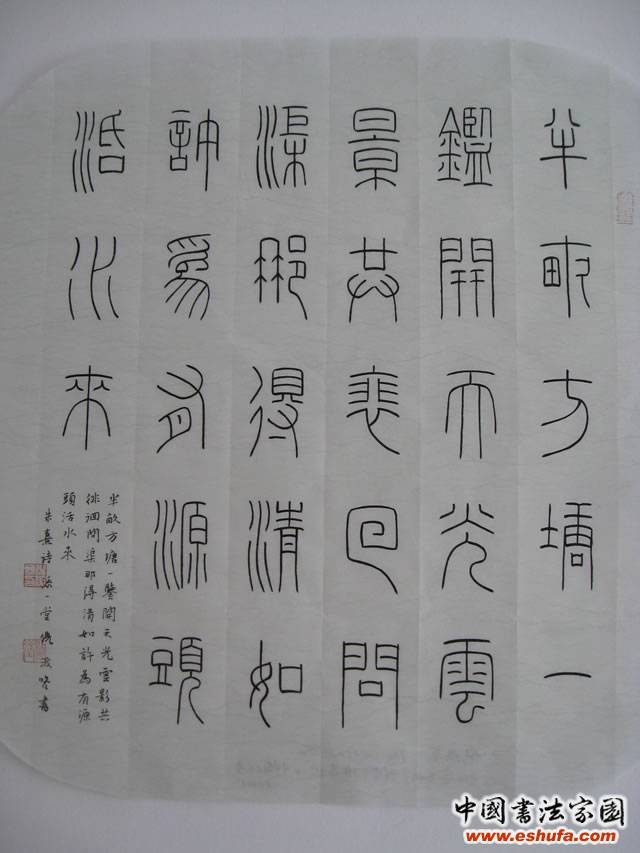 半畝方塘一
鑑開天光雲
景共裵回問
渠那得清如
許爲有源頭
活水來
半畝方塘一鑒開天光雲影共
徘徊問渠那得清如許為有源
頭活水來
朱熹詩 一堂 書
中國書法家園
www.eshufa.com